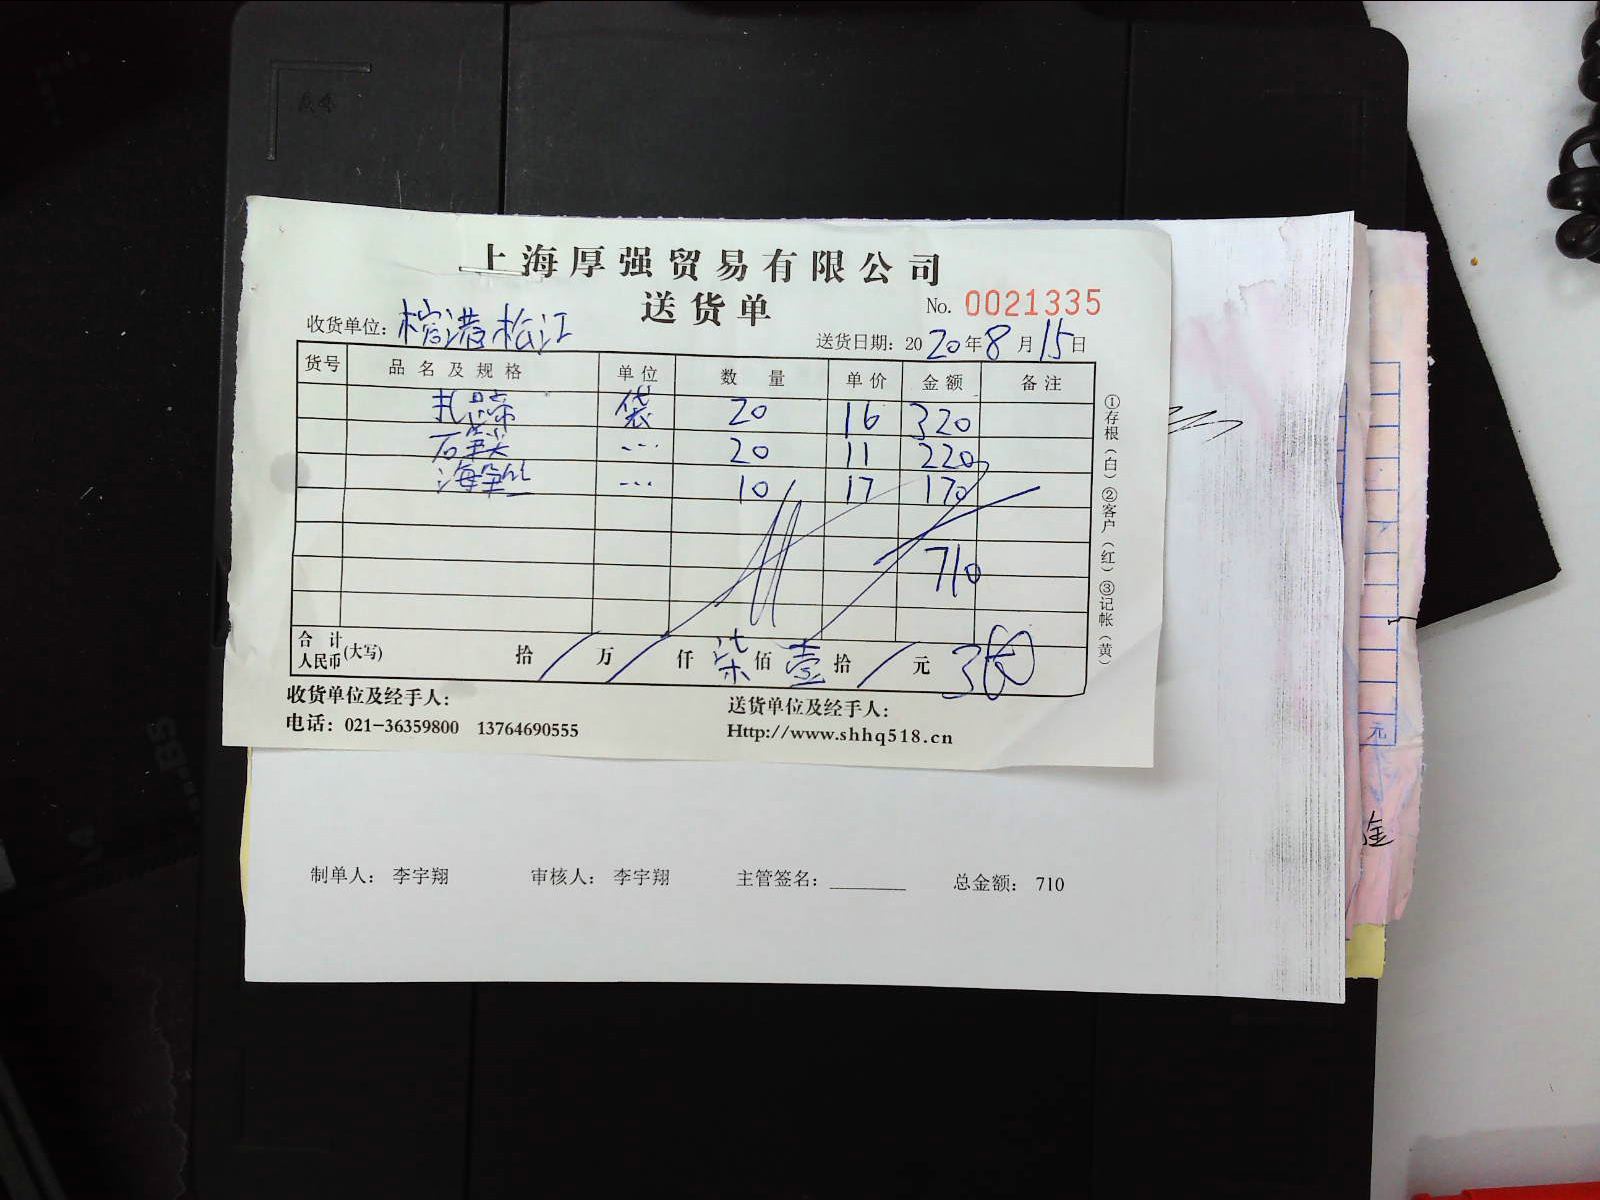 上海厚强贸易有限公司
送货单
No. 0021335
收货单位: 港松江
送货日期: 2020年8月15日
货号 品名及规格 单位 数量 单价 金额 备注
扎 袋 20 16 320
石 20 11 220
海 10 17 170
710
合计人民币(大写) 拾 万 仟 柒佰 壹拾 元
收货单位及经手人:
送货单位及经手人:
电话: 021-36359800 13764690555
Http://www.shhq518.cn
①存根(白)②客户(红)③记帐(黄)
制单人: 李宇翔 审核人: 李宇翔 主管签名: 总金额: 710
元
金